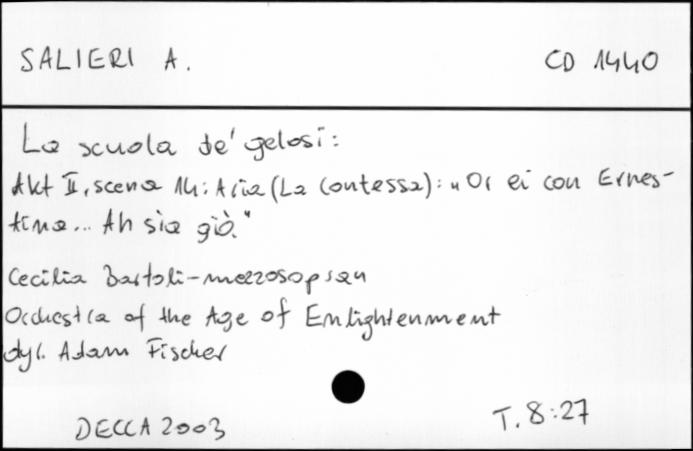 SALIERI A. CD 1440
La scuola de' gelosi:
Akt II, scena 14: Aria (La Contessa): „Or ei con Ernes-
tina... Ah sia già."
Cecilia Bartoli - mezzosopran
Orchestra of the Age of Enlightenment
dyr. Adam Fischer
DECCA 2003 T. 8:27